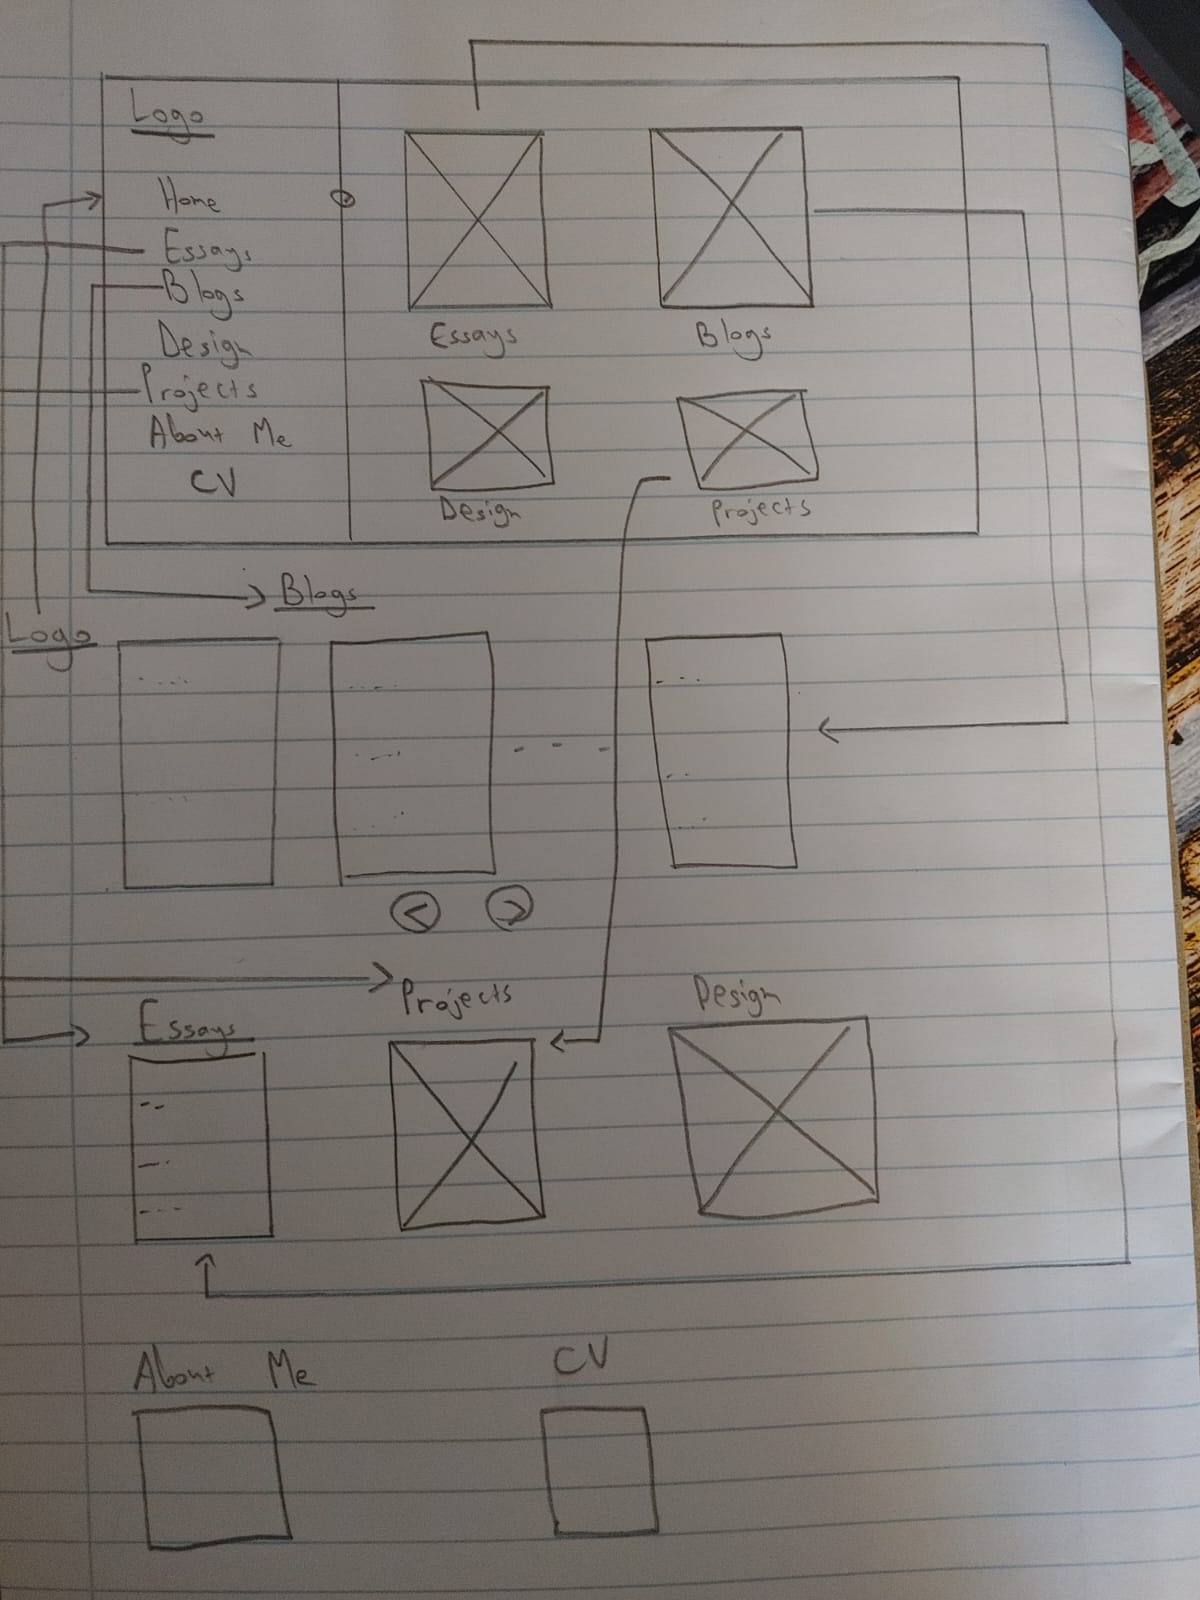 Logo
Home
Essays
Blogs
Design
Projects
About Me
CV
Essays
Blogs
Design
Projects
Blogs
Logo
< >
Projects
Design
Essays
About Me
CV